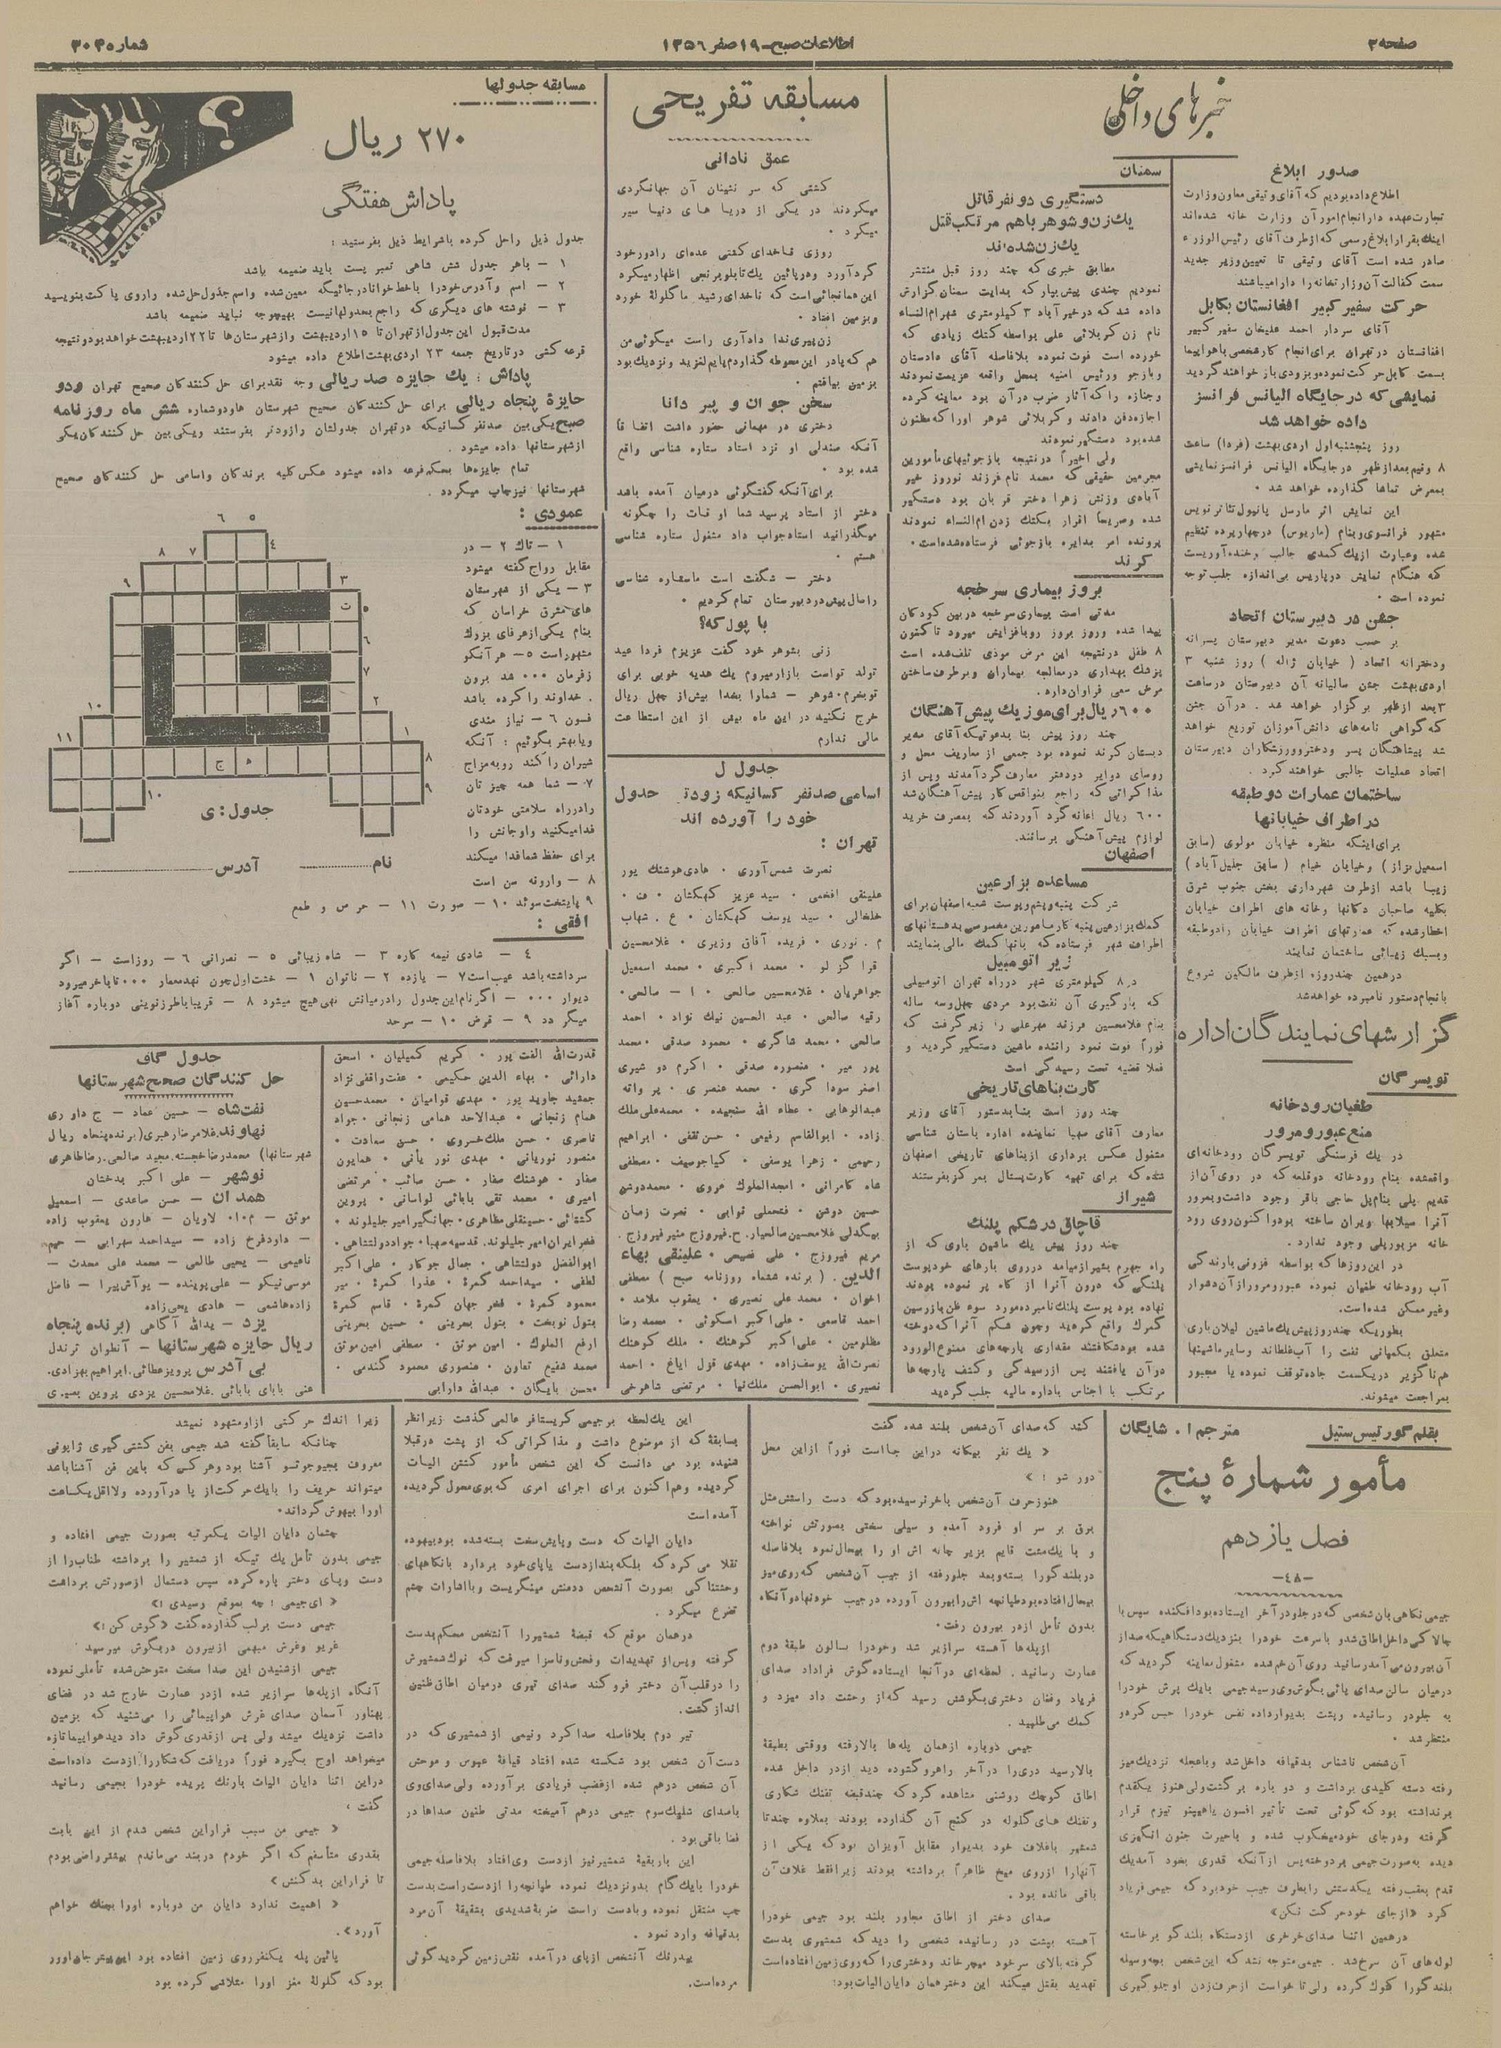 صفحه ۲
اطلاعات صبح - ۱۹ صفر ۱۳۵۶
شماره ۳۰۳۵
خبرهای داخلی
صدور ابلاغ
اطلاع داده بودیم که آقای وثیقی معاون وزارت
تجارت عهده دار انجام امور آن وزارت خانه شده‌اند
اینك بقرار ابلاغ رسمی که ازطرف آقای رئیس الوزراء
صادر شده است آقای وثیقی تا تعیین وزیر جدید
سمت کفالت آن وزارتخانه را دارا میباشند
حرکت سفیر کبیر افغانستان بکابل
آقای سردار احمد علیخان سفیر کبیر
افغانستان در تهران برای انجام کار شخصی با هواپیما
بسمت کابل حرکت نموده و بزودی باز خواهند گردید
نمایشی که در جایگاه الیانس فرانسز
داده خواهد شد
روز پنجشنبه اول اردی بهشت (فردا) ساعت
۸ ونیم بعدازظهر در جایگاه الیانس فرانسز نمایشی
بمعرض تماشا گذارده خواهد شد .
این نمایش اثر مارسل پانیول تئاتر نویس
مشهور فرانسوی و بنام (ماریوس) در چهار پرده تنظیم
شده و عبارت از یك کمدی جالب و خنده آوریست
که هنگام نمایش در پاریس بی اندازه جلب توجه
نموده است .
جشن در دبیرستان اتحاد
بر حسب دعوت مدیر دبیرستان پسرانه
ودخترانه اتحاد ( خیابان ژاله ) روز شنبه ۳
اردی بهشت جشن سالیانه آن دبیرستان در ساعت
۳ بعد ازظهر برگزار خواهد شد . در آن جشن
که گواهی نامه‌های دانش آموزان توزیع خواهد
شد پیشاهنگان پسر ودختر و ورزشکاران دبیرستان
اتحاد عملیات جالبی خواهند کرد .
ساختمان عمارات دو طبقه
در اطراف خیابانها
برای اینکه منظره خیابان مولوی (سابق
اسمعیل بزاز ) وخیابان خیام ( سابق جلیل آباد )
زیبا باشد ازطرف شهرداری بخش جنوب شرق
بکلیه صاحبان دکانها وخانه های اطراف خیابان
اخطار شده که عمارتهای اطراف خیابان را دو طبقه
وبسبك زیبائی ساختمان نمایند
درهمین چند روزه ازطرف مالکین شروع
بانجام دستور نامبرده خواهد شد
گزارشهای نمایندگان اداره
تویسرکان
طغیان رودخانه
منع عبور و مرور
در یك فرسنگی تویسرکان رودخانه‌ای
واقعشده بنام رودخانه دو قلعه که در روی آن از
قدیم پلی بنام پل حاجی باقر وجود داشت و بمرور
آنرا سیلابها ویران ساخته بود و اکنون روی رود
خانه مزبور پلی وجود ندارد .
در این روزها که بواسطه فزونی بارندگی
آب رودخانه طغیان نموده عبور و مرور از آن دشوار
وغیر ممکن شده است.
بطوریکه چند روز پیش یك ماشین لیلان باری
متعلق بکمپانی نفت را آب غلطاند وسایر ماشینها
هم ناگزیر در یکسمت جاده توقف نموده یا مجبور
بمراجعت میشوند.
سمنان
دستگیری دو نفر قاتل
یك زن و شوهر باهم مرتکب قتل
یك زن شده اند
مطابق خبری که چند روز قبل منتشر
نمودیم چندی پیش بیار که بدایت سمنان گزارش
داده شد که در خیر آباد ۳ کیلومتری شهر ام النساء
نام زن کربلائی علی بواسطه کتك زیادی که
خورده است فوت نموده بلافاصله آقای دادستان
وبازجو ورئیس امنیه بمحل واقعه عزیمت نمودند
وجنازه را که آثار ضرب در آن بود معاینه کرده
اجازه دفن دادند و کربلائی شوهر اورا که مظنون
شده بود دستگیر نمودند
ولی اخیراً درنتیجه بازجوئیهای مأمورین
مجرمین حقیقی که محمد نام فرزند نوروز خیر
آبادی وزنش زهرا دختر قربان بود دستگیر
شده وصریحاً اقرار بکتك زدن ام النساء نمودند
پرونده امر بدایره بازجوئی فرستاده شده است.
کرند
بروز بیماری سرخجه
مدتی است بیماری سرخجه در بین کودکان
پیدا شده وروز بروز رو بافزایش میرود تاکنون
۸ طفل درنتیجه این مرض موذی تلف شده است
پزشك بهداری در معالجه بیماران و برطرف ساختن
مرض سعی فراوان دارد.
۶۰۰ ریال برای موزیك پیش آهنگان
چند روز پیش بنا بدعوتیکه آقای مدیر
دبستان کرند نموده بود جمعی از معاریف محل و
روسای دوایر در دفتر معارف گرد آمدند وپس از
مذاکراتی که راجع بنواقص کار پیش آهنگان شد
۶۰۰ ریال اعانه گرد آوردند که بمصرف خرید
لوازم پیش آهنگی برسانند.
اصفهان
مساعده بزارعین
شرکت پنبه وپشم وپوست شعبه اصفهان برای
کمك بزارعین پنبه کار مامورین مخصوصی بدهستانهای
اطراف شهر فرستاده که بآنها کمك مالی بنمایند
زیر اتومبیل
در ۸ کیلومتری شهر در راه تهران اتومبیلی
که بارگیری آن نفت بود مردی چهل وسه ساله
بنام غلامحسین فرزند مهرعلی را زیر گرفت که
فوراً فوت نمود راننده ماشین دستگیر گردید و
فعلا قضیه تحت رسیدگی است
کارت بناهای تاریخی
چند روز است بنابدستور آقای وزیر
معارف آقای صهبا نماینده اداره باستان شناسی
مشغول عکس برداری ازبناهای تاریخی اصفهان
شده که برای تهیه کارت پستال بمرکز بفرستند
شیراز
قاچاق در شکم پلنك
چند روز پیش یك ماشین باری که از
راه جهرم بشیراز میامد در روی بارهای خود پوست
پلنگی که درون آنرا از کاه پر نموده بودند
نهاده بود پوست پلنك نامبرده مورد سوء ظن بازرسین
گمرك واقع گردید وچون شکم آنرا که دوخته
شده بود شکافتند مقداری پارچه‌های ممنوع الورود
در آن یافتند پس ازرسیدگی و کشف پارچه‌ها
مرتکب با اجناس باداره مالیه جلب گردید
مسابقه تفریحی
عمق نادانی
کشتی که سر نشینان آن جهانگردی
میکردند در یکی از دریا های دنیا سیر
میکرد .
روزی ناخدای کشتی عده‌ای را دور خود
گرد آورد و هر پائین یك تابلو برنجی اظهار میکرد
این همانجائی است که ناخدای رشید ما گلوله خورد
وبزمین افتاد .
زن پیری ندا دادآری راست میگوئی من
هم که پادر این محوطه گذاردم پایم لغزید ونزدیك بود
بزمین بیافتم .
سخن جوان و پیر دانا
دختری در مهمانی حضور داشت اتفاقا
آنکه صندلی او نزد استاد ستاره شناسی واقع
شده بود .
برای آنکه گفتگوئی درمیان آمده باشد
دختر از استاد پرسید شما اوقات را چگونه
میگذرانید استاد جواب داد مشغول ستاره شناسی
هستم .
دختر - شگفت است ماستاره شناسی
را سال پیش در دبیرستان تمام کردیم .
با پول که؟
زنی بشوهر خود گفت عزیزم فردا عید
تولد تواست بازار میروم یك هدیه خوبی برای
تو بخرم . شوهر - شمارا بخدا بیش از چهل ریال
خرج نکنید در این ماه بیش از این استطاعت
مالی ندارم
جدول ل
اسامی صد نفر کسانیکه زودتر جدول
خود را آورده اند
تهران :
نصرت شمس آوری . هادی هوشنك پور
علینقی افخمی . سید عزیز کهکشان . ف .
خلخالی . سید یوسف کهکشان . ع . شهاب
م . نوری . فریده آفاق وزیری . غلامحسین
قرا گز لو . محمد اکبری . محمد اسمعیل
جواهریان . غلامحسین صالحی . ا - صالحی .
رقیه صالحی . عبد الحسین نیك نژاد . احمد
صالحی . محمد شاکری . محمود صدقی . محمد
پور میر . منصوره صدقی . اکرم دو شیری
اصغر سودا گری . محمد عنصری . پروانه
عبدالوهابی . عطاء الله سنجیده . محمد علی ملك
زاده . ابوالقاسم رفیعی . حسن ثقفی . ابراهیم
رحیمی . زهرا یوسفی . کیا جوسیف . مصطفی
شاه کامرانی . امجد الملوك عروی . محمد دوشن
حسین دوشن . فتحعلی ثوابی . نصرت زمان
بیگدلی غلامحسین صالحیار . ح . فیروزج منیر فیروزج .
مریم فیروزج . علی فصیحی . علینقی بهاء
الدین . ( برنده ششماه روزنامه صبح ) مصطفی
اخوان . محمد علی نصیری . یعقوب ملامد .
احمد قاسمی . علی اکبر اسکوئی . محمد رضا
مظلومین . علی اکبر کوهنك . ملك کوهنك
نصرت الله یوسف زاده . مهدی قول ایاغ . احمد
نصیری . ابوالحسن ملك نیا . مرتضی شاهرخی
مسابقه جدولها
۲۷۰ ریال
پاداش هفتگی
؟
جدول ذیل را حل کرده باشرایط ذیل بفرستید :
۱ - باهر جدول شش شاهی تمبر پست باید ضمیمه باشد
۲ - اسم وآدرس خودرا باخط خوانا در جائیکه معین شده واسم جدول حل شده را روی پاکت بنویسید
۳ - نوشته های دیگری که راجع بجدولها نیست بهیچوجه نباید ضمیمه باشد
مدت قبول این جدول از تهران تا ۱۵ اردیبهشت واز شهرستان ها تا ۲۲ اردیبهشت خواهد بود ونتیجه
قرعه کشی در تاریخ جمعه ۲۳ اردی بهشت اطلاع داده میشود
پاداش : یك جایزه صد ریالی وجه نقد برای حل کنندگان صحیح تهران ودو
جایزهٔ پنجاه ریالی برای حل کنندگان صحیح شهرستان ها ودو شماره شش ماه روزنامه
صبح یکی بین صد نفر کسانیکه در تهران جدولشان را زودتر بفرستند ویکی بین حل کنندگان یکی
از شهرستانها داده میشود .
تمام جایزه‌ها بحکم قرعه داده میشود عکس کلیه برندگان واسامی حل کنندگان صحیح
شهرستانها نیز چاپ میگردد .
عمودی :
۱ - تاك ۲ - در
مقابل رواج گفته میشود
۳ - یکی از شهرستان
های مشرق خراسان که
بنام یکی از عرفای بزرك
مشهور است ۵ - هر آنکو
زفرمان ۰۰۰ شد برون
. خداوند را کرده باشد
فسون ۶ - نیاز مندی
ویا بهتر بگوئیم : آنکه
شیران را کند روبه مزاج
۷ - شما همه چیز تان
را در راه سلامتی خودتان
فدا میکنید واو جانش را
برای حفظ شما فدا میکند
۸ - وارونه سن است
۹ پایتخت سوئد ۱۰ - صورت ۱۱ - حرص و طمع
۶ ۵
۸ ۷ ٤
۹ ۳
ت ۵
۶
۷
۱۰ ۲
۱۱ ۱
ج ه ۸
۱۰ ۹
جدول : ی
نام
آدرس
افقی :
٤ - شادی نیمه کاره ۳ - شاه زیبائی ۵ - نصرانی ۶ - روز است - اگر
سر داشته باشد عیب است ۷ - یازده ۲ - ناتوان ۱ - خشت اول چون نهد معمار ۰۰۰ تا پاخر میرود
دیوار ۰۰۰ - اگر نام این جدول را در میانش نهی هیچ میشود ۸ - قریبا باطرز نوینی دوباره آغاز
میگر دد ۹ - قرض ۱۰ - سرحد
قدرت الله الفت پور . کریم کمیلیان . اسحق
دارائی . بهاء الدین حکیمی . عفت واقفی نژاد
جمشید جاوید پور . مهدی قوامیان . محمد حسین
همام زنجانی . عبدالاحد همامی زنجانی . جواد
ناصری . حسن ملك خسروی . حسن سعادت .
منصور نوریانی . مهدی نور یأنی . همایون
صفار . هوشنك صفار . حسن صائب . مرتضی
امیری . محمد تقی بابائی لواسانی . پروین
گشتائی . حسینقلی مظاهری . جهانگیر امیر جلیلوند .
فخر ایران امیر جلیلوند . قدسیه صهبا . جواد دولتشاهی .
ابوالفضل دولتشاهی . جمال جوکار . علی اکبر
لطفی . سید احمد گمرك . عذرا گمرك . میر
محمود گمرك . فخر جهان گمرك . قاسم گمرك
بتول نوبخت . بتول بحرینی . حسین بحرینی
ارفع الملوك . امین موثق . مصطفی امین موثق
محمد شفیع تعاون . منصوری محمود گندمی .
محسن بایگان . عبدالله دارابی
جدول گاف
حل کنندگان صحیح شهرستانها
نفت شاه - حسین عماد - ج داوری
نهاوند . غلامرضا رهبری (برنده پنجاه ریال
شهرستانها) محمد رضا خجسته . مجید صالحی . رضا طاهری
نوشهر - علی اکبر بدخشان
همدان - حسن صاعدی - اسمعیل
موثق - م.ا. لاویان - هارون یعقوب زاده
- داود فرخ زاده - سید احمد سهرابی - حیم
ناهیمی - یحیی طالعی - محمد علی محدث -
موسی نیکو - علی پوینده - یوآش پیرا - فاضل
زاده هاشمی - هادی یحیی زاده
یزد - یدالله آگاهی (برنده پنجاه
ریال جایزه شهرستانها) - آنطوان ترندل
بی آدرس پرویز عطائی . ابراهیم بهزادی .
غنی بابای بابائی . غلامحسین یزدی پروین بصیری
بقلم گورتیس ستیل
مترجم ا . شایگان
مأمور شمارهٔ پنج
فصل یازدهم
-۴۵-
جیمی نگاهی بان شخصی که در جلو در آخر ایستاده بود افکنده سپس با
چالاکی داخل اطاق شد و باسرعت خودرا بنزدیك دستگاهیکه صدا از
آن بیرون می آمد رسانید روی آن خم شده مشغول معاینه گردید که
درمیان سالن صدای پائی بگوش وی رسید جیمی بایك پرش خودرا
به جلو در رسانیده وپشت بدیوار داده نفس خودرا حبس کرد و
منتظر شد .
آن شخص ناشناس بدقیافه داخل شد وباعجله نزدیك میز
رفته دسته کلیدی برداشت و دو باره برگشت ولی هنوز یکقدم
برنداشته بود که گوئی تحت تأثیر افسون یا هیپنو تیزم قرار
گرفته ودرجای خود میخکوب شده و با حیرت جنون انگیزی
دیده به صورت جیمی بر دوخته پس از آنکه قدری بخود آمد یك
قدم بعقب رفته یکدستش را بطرف جیب خود برد که جیمی فریاد
کرد «از جای خود حرکت نکن»
درهمین اثنا صدای خرخری ازدستگاه بلند گو برخاسته
لوله های آن سرخ شد . جیمی متوجه نشد که این شخص بچه وسیله
بلند گورا کلوك کرده ولی تا خواست از حرف زدن او جلو گیری
کند که صدای آن شخص بلند شده گفت
« یك نفر بیگانه در این جا است فوراً از این محل
دور شو !»
هنوز حرف آن شخص باخر نرسیده بود که دست راستش مثل
برق بر سر او فرود آمده و سیلی سختی بصورتش نواخته
و با یك مشت قایم بزیر چانه اش او را بیحال نمود بلافاصله
در بلند گورا بسته وبعد جلو رفته از جیب آن شخص که روی میز
بیحال افتاده بود طپانچه اش را بیرون آورده در جیب خود نهاد و آنگاه
بدون تأمل از در بیرون رفت.
از پله‌ها آهسته سرازیر شد وخود را بسالون طبقهٔ دوم
عمارت رسانید . لحظه‌ای در آنجا ایستاده گوش فراداد صدای
فریاد وفغان دختری بگوشش رسید که از وحشت داد میزد و
کمك می طلبید .
جیمی دوباره ازهمان پله‌ها بالا رفته ووقتی بطبقهٔ
بالا رسید دری را در آخر راهرو گشوده دید ازدر داخل شده
اطاق کوچك روشنی مشاهده کرد که چند قبضه تفنك شکاری
وتفنك های گلوله در کنج آن گذارده بودند بعلاوه چند تا
شمشیر باغلاف خود بدیوار مقابل آویزان بود که یکی از
آنهارا ازروی میخ ظاهراً برداشته بودند زیرا فقط غلاف آن
باقی مانده بود .
صدای دختر از اطاق مجاور بلند بود جیمی خودرا
آهسته بپشت در رسانیده شخصی را دید که شمشیری بدست
گرفته بالای سر خود میچرخاند ودختری را که روی زمین افتاده است
تهدید بقتل میکند این دختر همان دایان الیات بود؛
این یك لحظه بر جیمی کریستافر عالمی گذشت زیرانظر
بسابقهٔ که از موضوع داشت و مذاکراتی که از پشت در قبلا
شنیده بود می دانست که این شخص مأمور کشتن الیات
گردیده وهم اکنون برای اجرای امری که بوی محول گردیده
آمده است
دایان الیات که دست وپایش سخت بسته شده بود بیهوده
تقلا می کرد که بلکه بند از دست یا پای خود بردارد بانگاههای
وحشتناکی بصورت آنشخص ددمنش مینگریست وبا اشارات چشم
تضرع میکرد .
درهمان موقع که قبضهٔ شمشیر را آنشخص محکم بدست
گرفته وپس از تهدیدات وفحش وناسزا میرفت که نوك شمشیرش
را در قلب آن دختر فرو کند صدای تیری درمیان اطاق طنین
انداز گشت.
تیر دوم بلافاصله صدا کرد ونیمی از شمشیری که در
دست آن شخص بود شکسته شده افتاد قیافهٔ عبوس و موحش
آن شخص درهم شده ازغضب فریادی برآورده ولی صدای وی
باصدای شلیك سوم جیمی درهم آمیخته مدتی طنین صداها در
فضا باقی بود .
این بار بقیهٔ شمشیر نیز ازدست وی افتاد بلافاصله جیمی
خودرا بایك گام بدو نزدیك نموده طپانچه را ازدست راست بدست
چپ منتقل نموده وبادست راست ضربهٔ شدیدی بشقیقهٔ آن مرد
بدقیافه وارد نمود .
بیدرنك آنشخص ازپای در آمده نقش زمین گردید گوئی
مرده است.
زیرا اندك حرکتی ازاو مشهود نمیشد
چنانکه سابقاً گفته شد جیمی بفن کشتی گیری ژاپونی
معروف بجیو جو تسو آشنا بود وهر کس که باین فن آشنا باشد
میتواند حریف را بایك حرکت از پا در آورده ولا اقل یکساعت
اورا بیهوش گرداند.
چشمان دایان الیات یکمرتبه بصورت جیمی افتاده و
جیمی بدون تأمل یك تیکه از شمشیر را برداشته طناب را از
دست وپای دختر پاره کرده سپس دستمال ازصورتش برداشت
« ای جیمی ! چه بموقع رسیدی !»
جیمی دست بر لب گذارده گفت « گوش کن !»
غریو وغرش مبهمی ازبیرون در بگوش میرسید
جیمی ازشنیدن این صدا سخت متوحش شده تأملی نموده
آنگاه ازپله‌ها سرازیر شده ازدر عمارت خارج شد در فضای
پهناور آسمان صدای غرش هواپیمائی را می شنید که بزمین
داشت نزدیك میشد ولی پس از قدری گوش داد دید هواپیما تازه
میخواهد اوج بگیرد فوراً دریافت که شکار را ازدست داده است
دراین اثنا دایان الیات بارنك پریده خودرا بجیمی رسانید
گفت ،
« جیمی من سبب فرار این شخص شدم از این بابت
بقدری متأسفم که اگر خودم در بند می ماندم بیشتر راضی بودم
تا فرار این بد کنش »
« اهمیت ندارد دایان من دوباره اورا بچنك خواهم
آورد».
پائین پله یکنفر روی زمین افتاده بود
بود که گلولهٔ مغز اورا متلاشی کرده بود